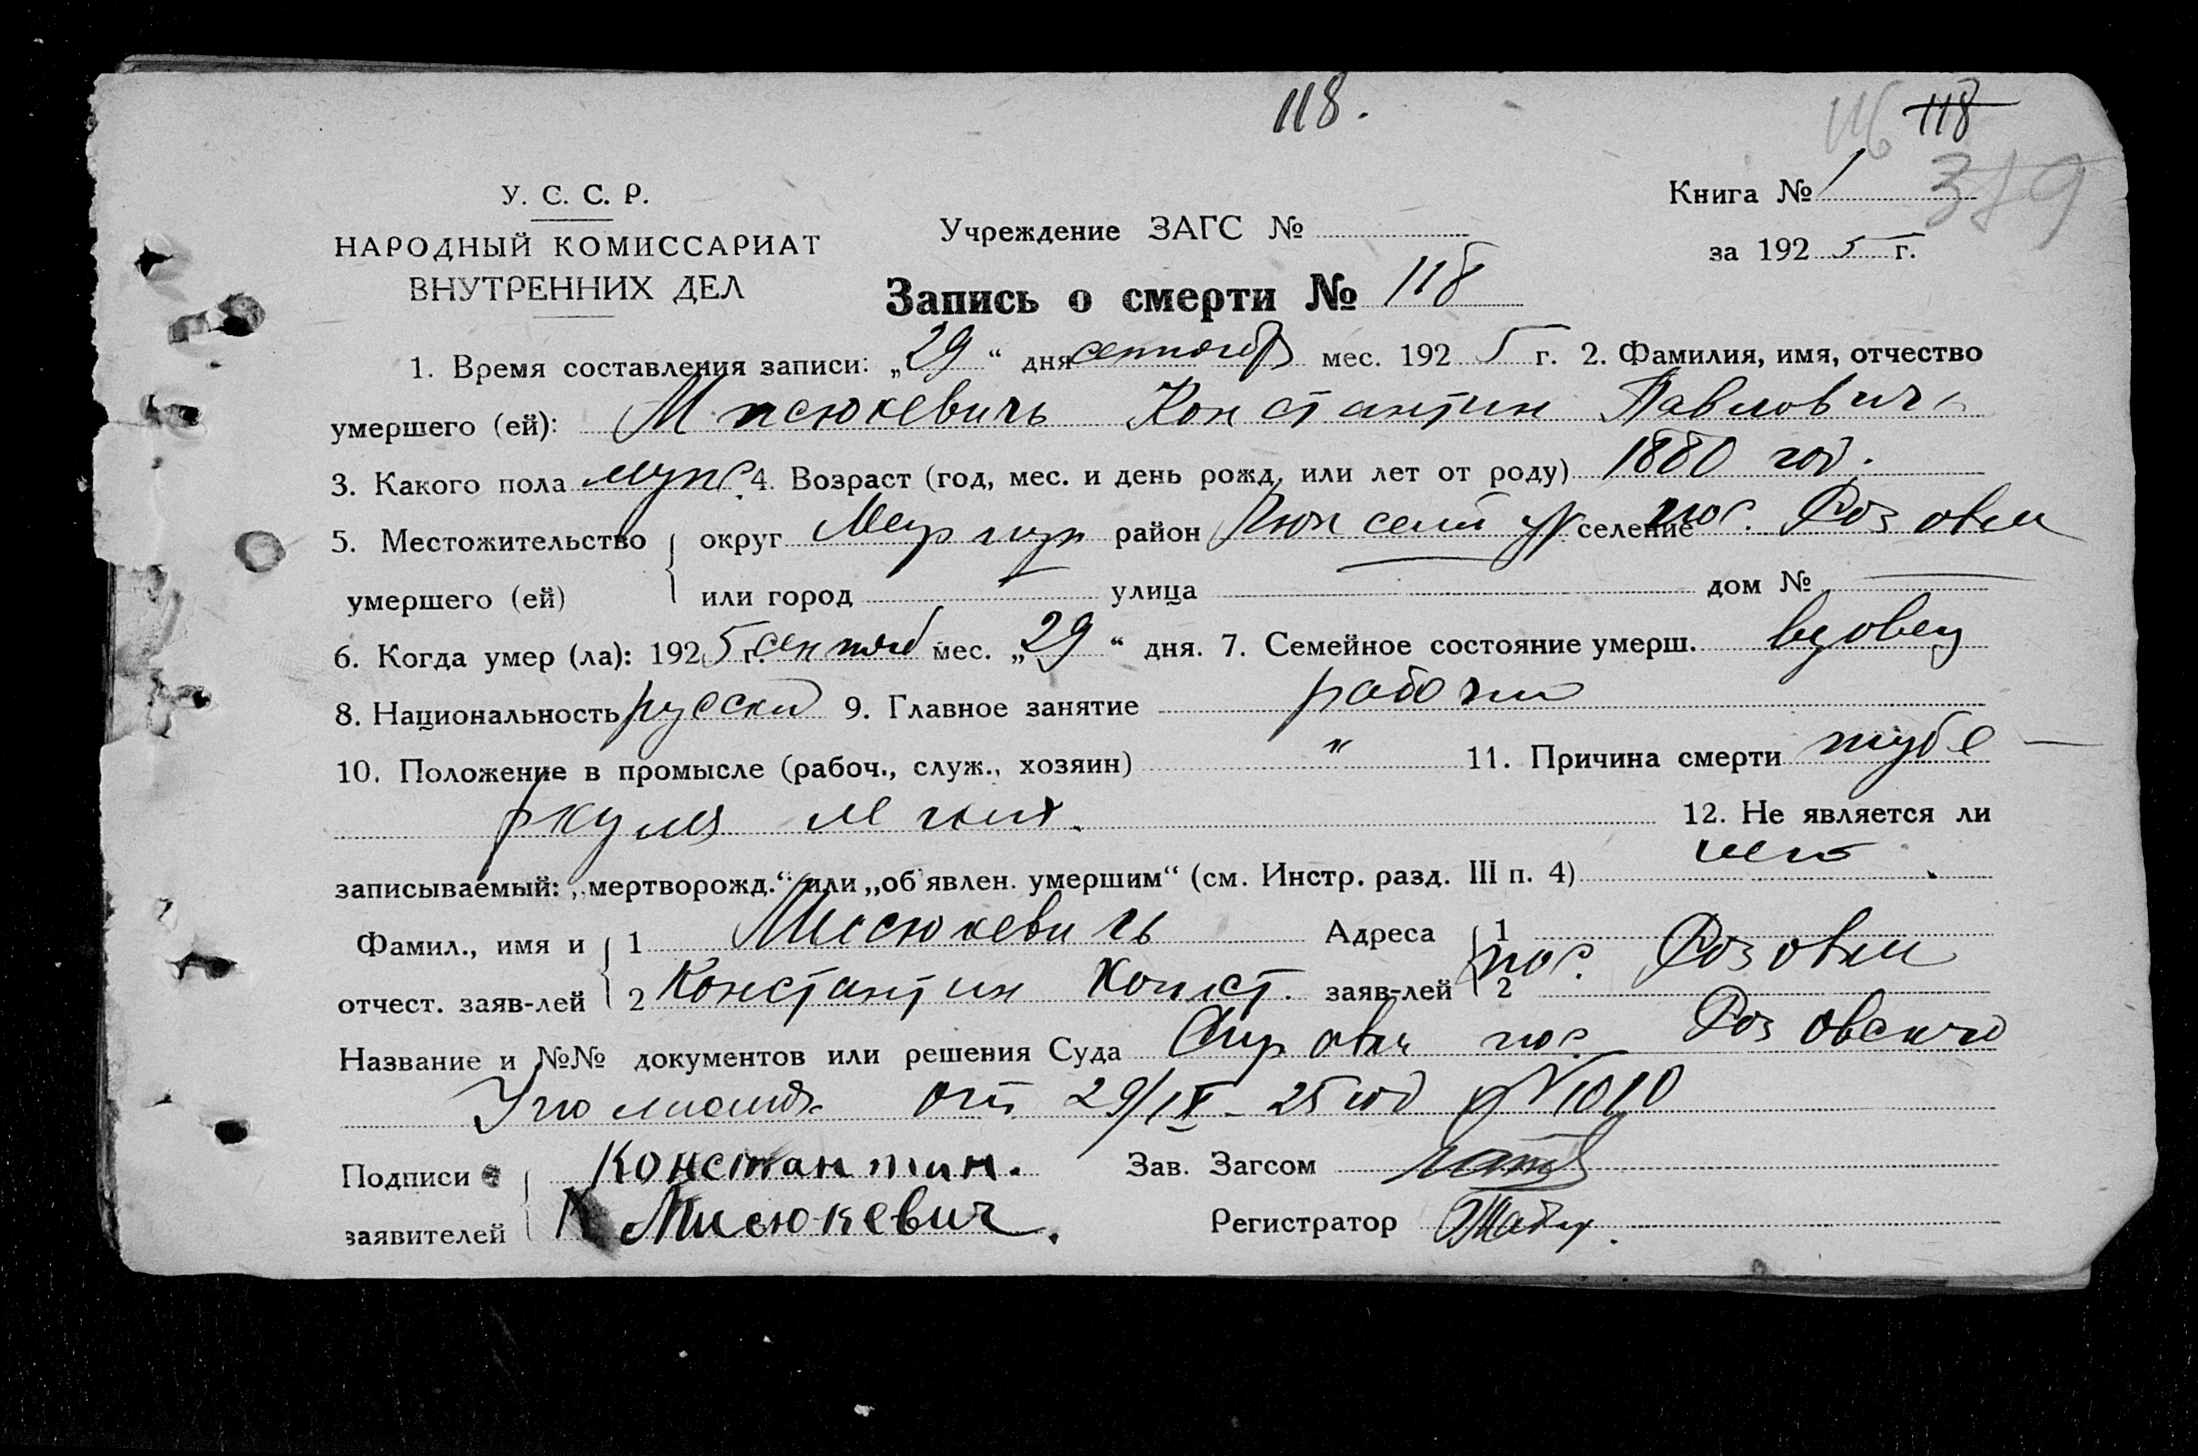 118.
116 118
319
У. С. С. Р.
НАРОДНЫЙ КОМИССАРИАТ
ВНУТРЕННИХ ДЕЛ
Учреждение ЗАГС №
Книга № 1
за 1925 г.
Запись о смерти № 118
1. Время составления записи: „29“ дня сентябр мес. 1925 г. 2. Фамилия, имя, отчество
умершего (ей): Мисюкевичь Константин Павлович
3. Какого пола муж. 4. Возраст (год, мес. и день рожд. или лет от роду) 1880 год.
5. Местожительство округ район селение пос. Розовки
умершего (ей) или город улица дом №
6. Когда умер (ла): 1925 г. сентяб мес. „29“ дня. 7. Семейное состояние умерш. вдовец
8. Национальность русски 9. Главное занятие рабочи
10. Положение в промысле (рабоч., служ., хозяин) " 11. Причина смерти тубе-
ркулез легких. 12. Не является ли
записываемый: „мертворожд.“ или „об'явлен. умершим“ (см. Инстр. разд. III п. 4) нет
Фамил., имя и 1 Мисюкевичь Адреса 1
отчест. заяв-лей 2 Константин Конст. заяв-лей 2 пос. Розовки
Название и №№ документов или решения Суда пос. Розовского
от 29/IX-25 год № 1010
Подписи Константин. Зав. Загсом
заявителей Мисюкевич. Регистратор